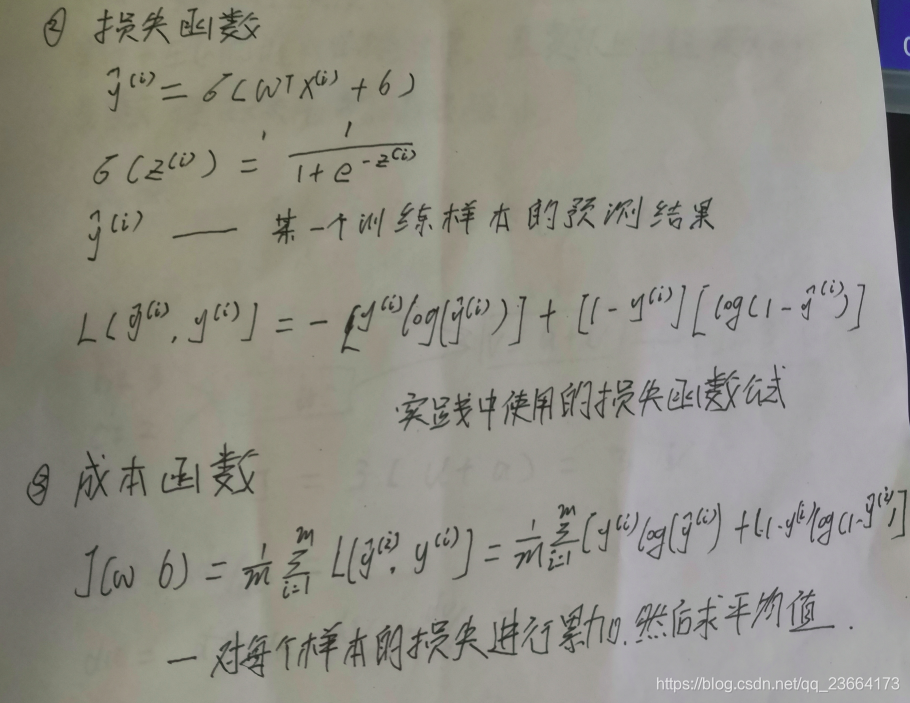 ② 损失函数
ŷ⁽ⁱ⁾ = σ(wᵀx⁽ⁱ⁾ + b)
σ(z⁽ⁱ⁾) = 1 / (1 + e^(-z⁽ⁱ⁾))
ŷ⁽ⁱ⁾ —— 某一个训练样本的预测结果
L(ŷ⁽ⁱ⁾, y⁽ⁱ⁾] = -[y⁽ⁱ⁾log(ŷ⁽ⁱ⁾)] + [1-y⁽ⁱ⁾][log(1-ŷ⁽ⁱ⁾)]
实践中使用的损失函数公式
③ 成本函数
J(w b) = 1/m Σᵢ₌₁ᵐ L(ŷ⁽ⁱ⁾, y⁽ⁱ⁾] = 1/m Σᵢ₌₁ᵐ [y⁽ⁱ⁾log(ŷ⁽ⁱ⁾) + (1-y⁽ⁱ⁾log(1-ŷ⁽ⁱ⁾)]
— 对每个样本的损失进行累加.然后求平均值.
https://blog.csdn.net/qq_23664173